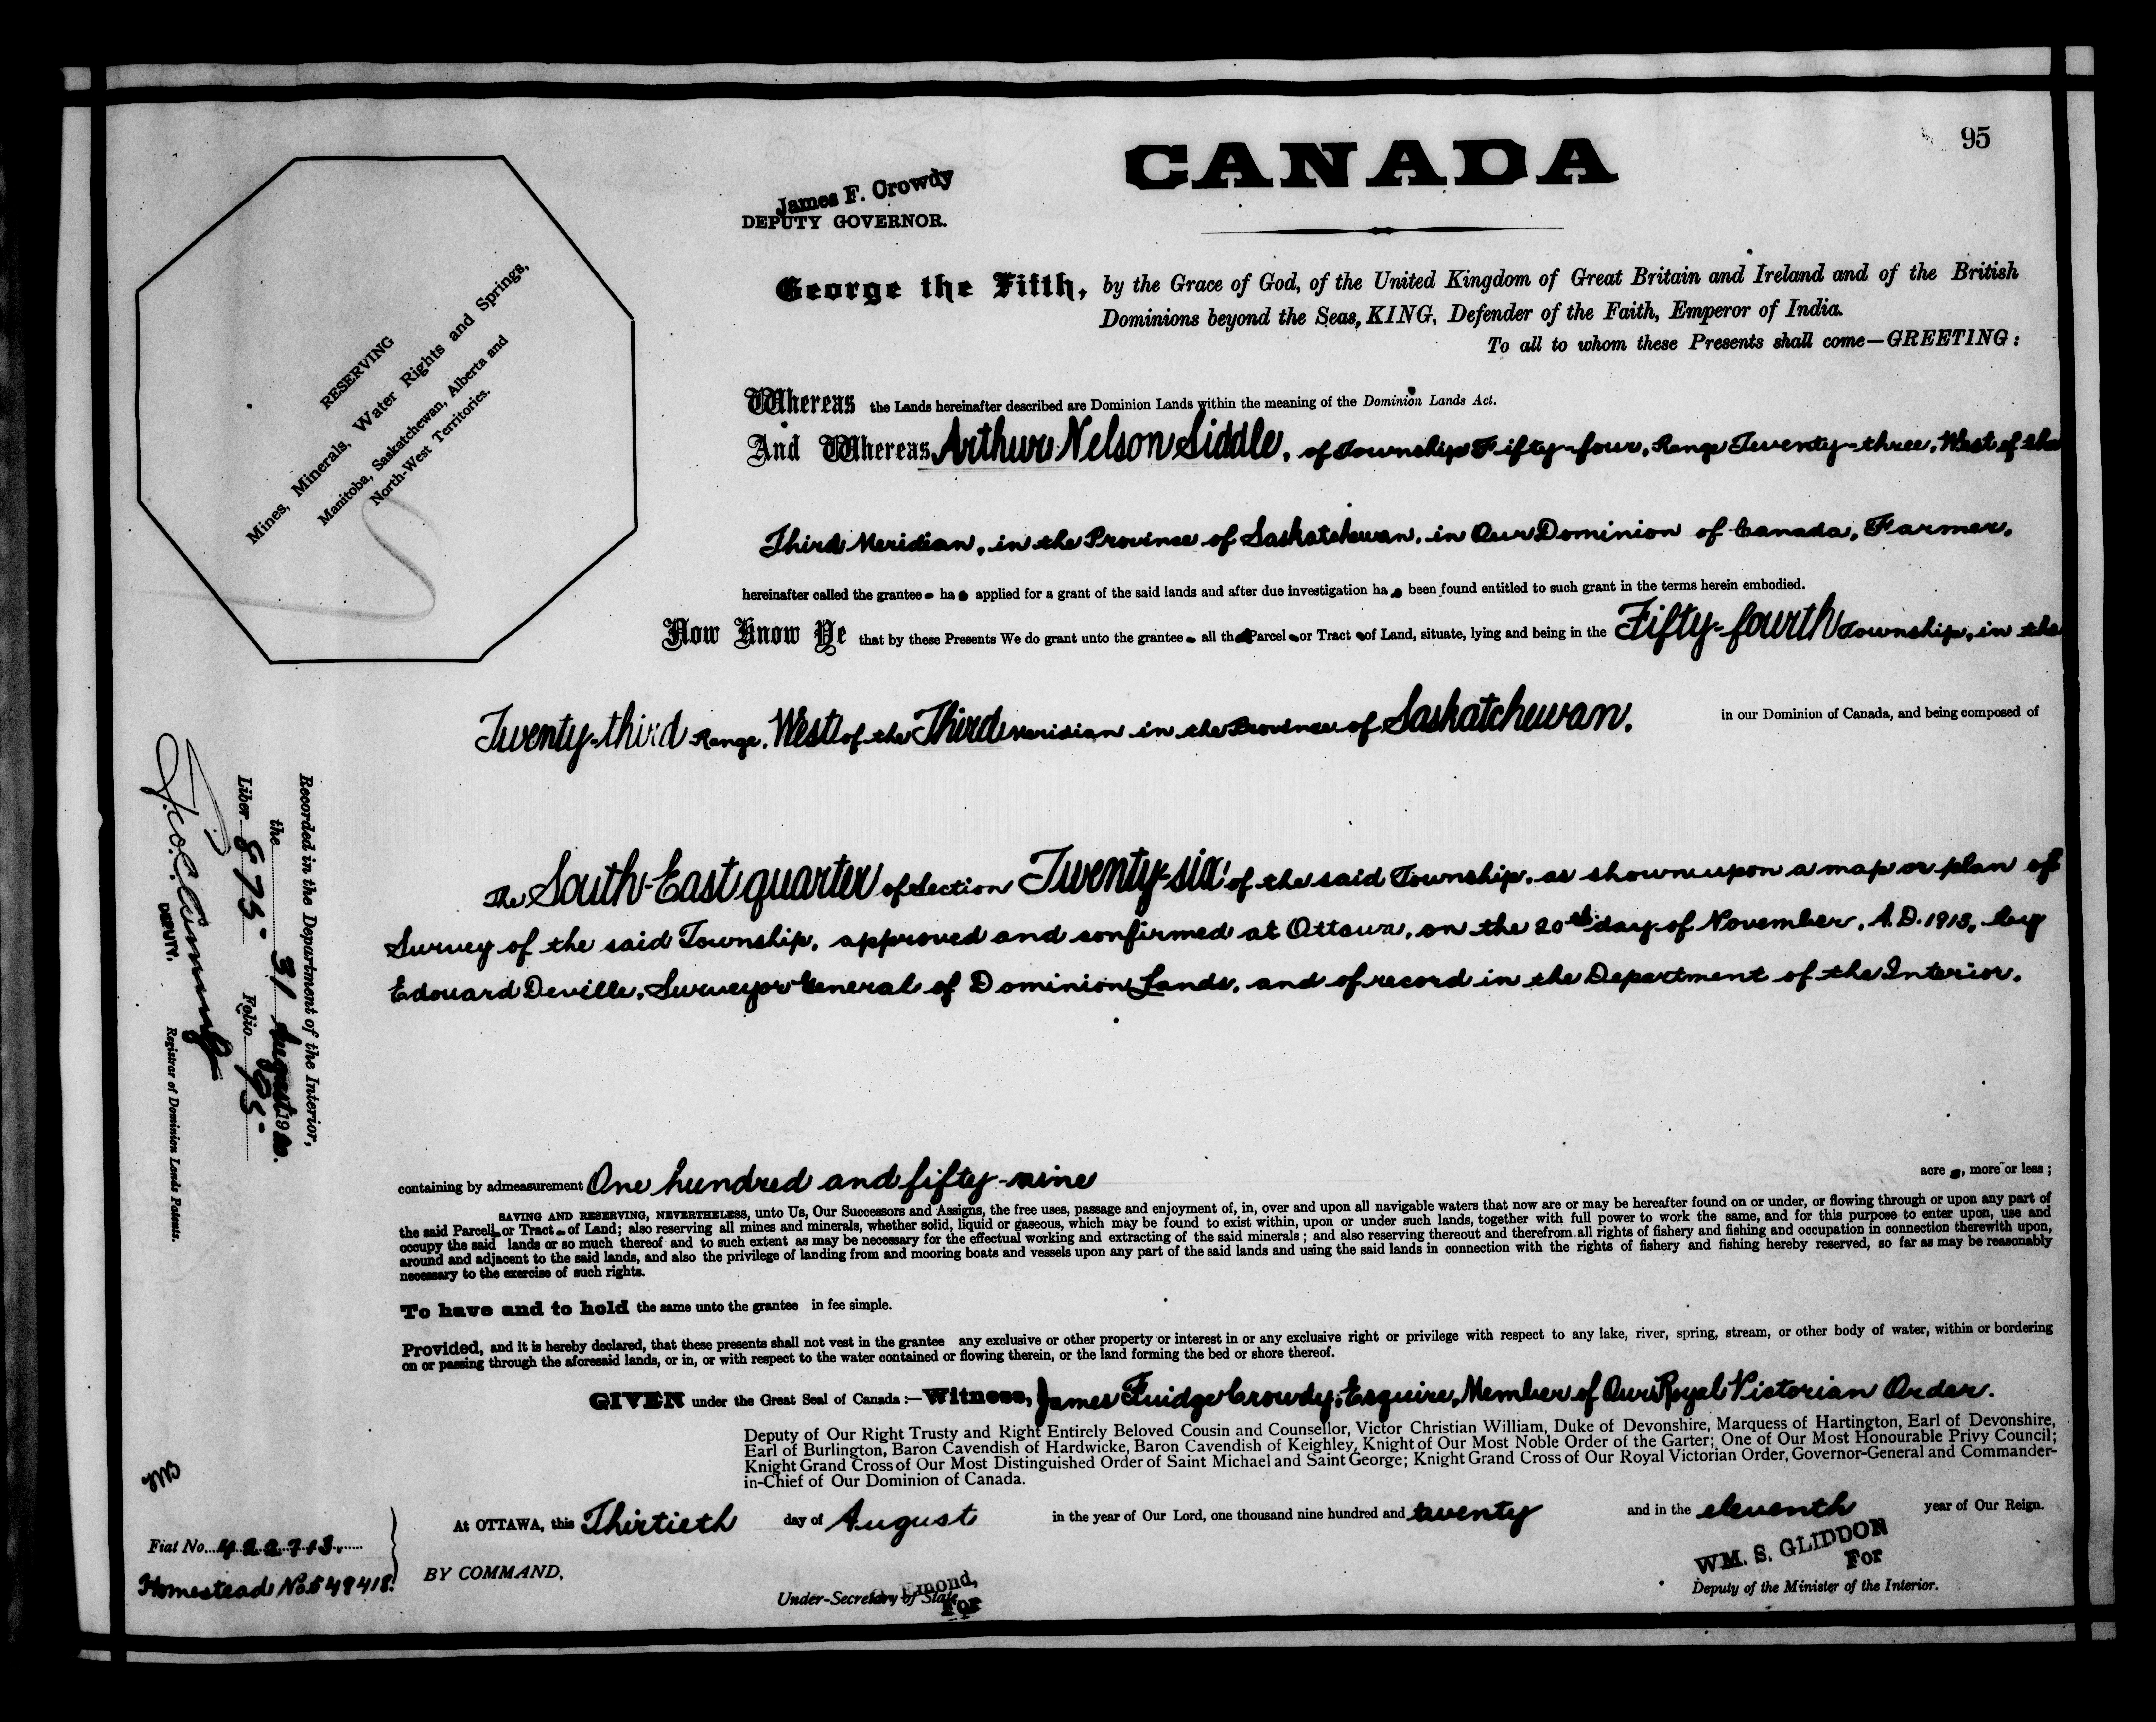 95
CANADA
James F. Crowdy
DEPUTY GOVERNOR.
RESERVING
Mines, Minerals, Water Rights and Springs,
Manitoba, Saskatchewan, Alberta and
North-West Territories.
George the Fifth, by the Grace of God, of the United Kingdom of Great Britain and Ireland and of the British
Dominions beyond the Seas, KING, Defender of the Faith, Emperor of India.
To all to whom these Presents shall come—GREETING:
Whereas the Lands hereinafter described are Dominion Lands within the meaning of the Dominion Lands Act.
And Whereas Arthur Nelson Siddle, of Township Fifty-four, Range Twenty-three, West of the
Third Meridian, in the Province of Saskatchewan, in Our Dominion of Canada, Farmer,
hereinafter called the grantee ha applied for a grant of the said lands and after due investigation ha been found entitled to such grant in the terms herein embodied.
Now Know Ye that by these Presents We do grant unto the grantee all that Parcel or Tract of Land, situate, lying and being in the Fifty-fourth Township, in the
Twenty-third Range, West of the Third Meridian in the Province of Saskatchewan, in our Dominion of Canada, and being composed of
The South-East quarter of Section Twenty-six of the said Township, as shown upon a map or plan of
Survey of the said Township, approved and confirmed at Ottawa, on the 20th day of November, A.D. 1913, by
Edouard Deville, Surveyor General of Dominion Lands, and of record in the Department of the Interior.
Recorded in the Department of the Interior,
the 31 August 1920.
Liber 875- Folio 95-
DEPUTY. Registrar of Dominion Lands Patents.
containing by admeasurement One hundred and fifty-nine acre , more or less;
SAVING AND RESERVING, NEVERTHELESS, unto Us, Our Successors and Assigns, the free uses, passage and enjoyment of, in, over and upon all navigable waters that now are or may be hereafter found on or under, or flowing through or upon any part of
the said Parcel or Tract of Land; also reserving all mines and minerals, whether solid, liquid or gaseous, which may be found to exist within, upon or under such lands, together with full power to work the same, and for this purpose to enter upon, use and
occupy the said lands or so much thereof and to such extent as may be necessary for the effectual working and extracting of the said minerals; and also reserving thereout and therefrom all rights of fishery and fishing and occupation in connection therewith upon,
around and adjacent to the said lands, and also the privilege of landing from and mooring boats and vessels upon any part of the said lands and using the said lands in connection with the rights of fishery and fishing hereby reserved, so far as may be reasonably
necessary to the exercise of such rights.
To have and to hold the same unto the grantee in fee simple.
Provided, and it is hereby declared, that these presents shall not vest in the grantee any exclusive or other property or interest in or any exclusive right or privilege with respect to any lake, river, spring, stream, or other body of water, within or bordering
on or passing through the aforesaid lands, or in, or with respect to the water contained or flowing therein, or the land forming the bed or shore thereof.
GIVEN under the Great Seal of Canada:—Witness, James Fuidge Crowdy, Esquire, Member of Our Royal Victorian Order.
Deputy of Our Right Trusty and Right Entirely Beloved Cousin and Counsellor, Victor Christian William, Duke of Devonshire, Marquess of Hartington, Earl of Devonshire,
Earl of Burlington, Baron Cavendish of Hardwicke, Baron Cavendish of Keighley, Knight of Our Most Noble Order of the Garter; One of Our Most Honourable Privy Council;
Knight Grand Cross of Our Most Distinguished Order of Saint Michael and Saint George; Knight Grand Cross of Our Royal Victorian Order, Governor-General and Commander-
in-Chief of Our Dominion of Canada.
At OTTAWA, this Thirtieth day of August in the year of Our Lord, one thousand nine hundred and twenty and in the eleventh year of Our Reign.
Fiat No. 422713.
Homestead No. 549418.
BY COMMAND,
WM. S. GLIDDON
For
Deputy of the Minister of the Interior.
Emond,
Under-Secretary of State
For